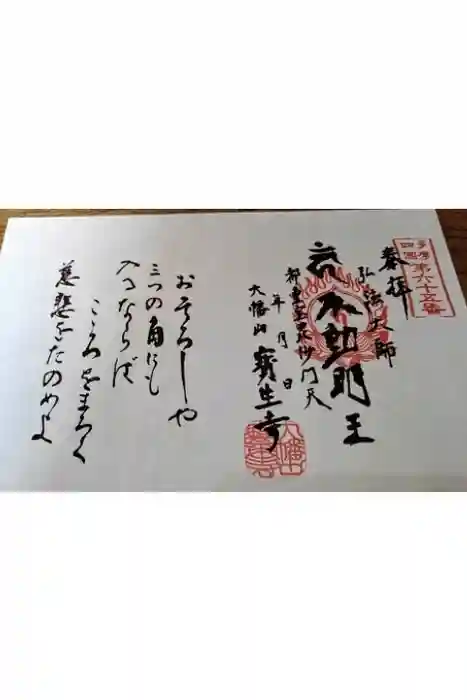 多摩
四國
第六十五番
奉拝
弘法大師
不動明王
都重宝毘沙門天
年 月 日
大幡山 寳生寺
おそろしや
三つの角にも
入るならば
こころをまろく
慈悲をたのめよ